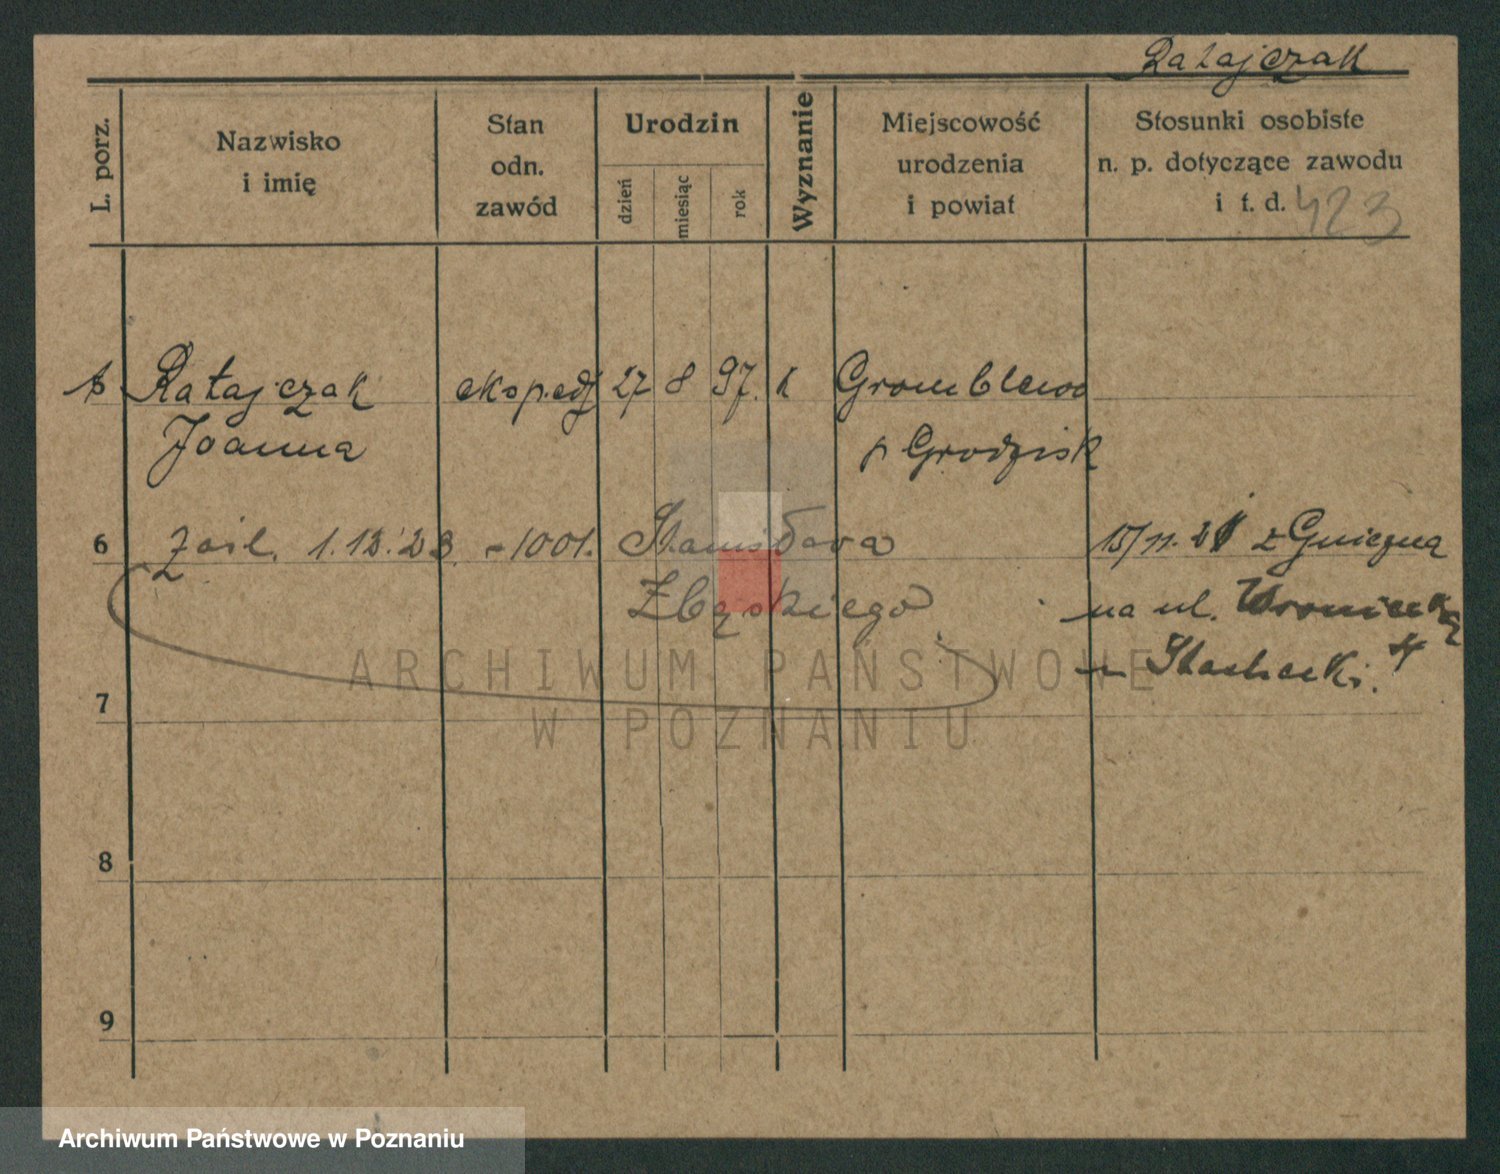 Ratajczak
L. porz.
Nazwisko
i imię
Stan
odn.
zawód
Urodzin
dzień
miesiąc
rok
Wyznanie
Miejscowość
urodzenia
i powiat
Stosunki osobiste
n. p. dotyczące zawodu
i t. d.
423
Ratajczak eksped 27 8 97. k Gromblewo
Joanna p Grodzisk
6
1.12.23. Stanisława 15/11. z Gniezna
Zbąskiego na ul. Wroniecką
7
8
9
ARCHIWUM PAŃSTWOWE
W POZNANIU
Archiwum Państwowe w Poznaniu